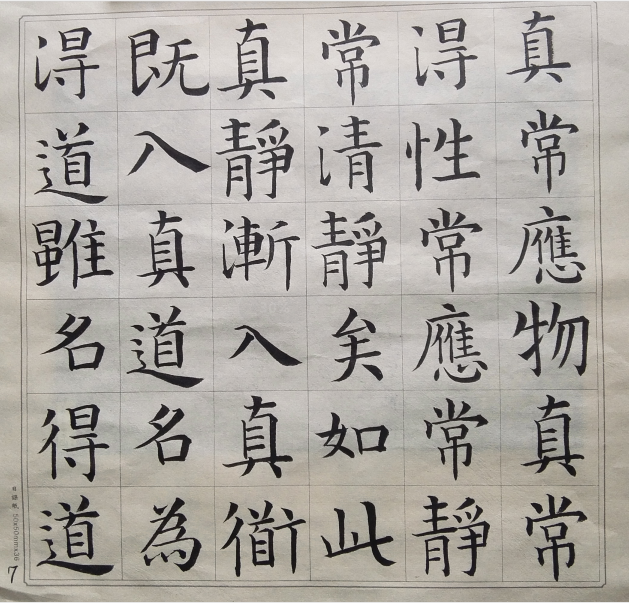 真常應物真常
淂性常應常靜
常清靜矣如此
真靜漸入真衜
既入真道名為
淂道雖名得道
7